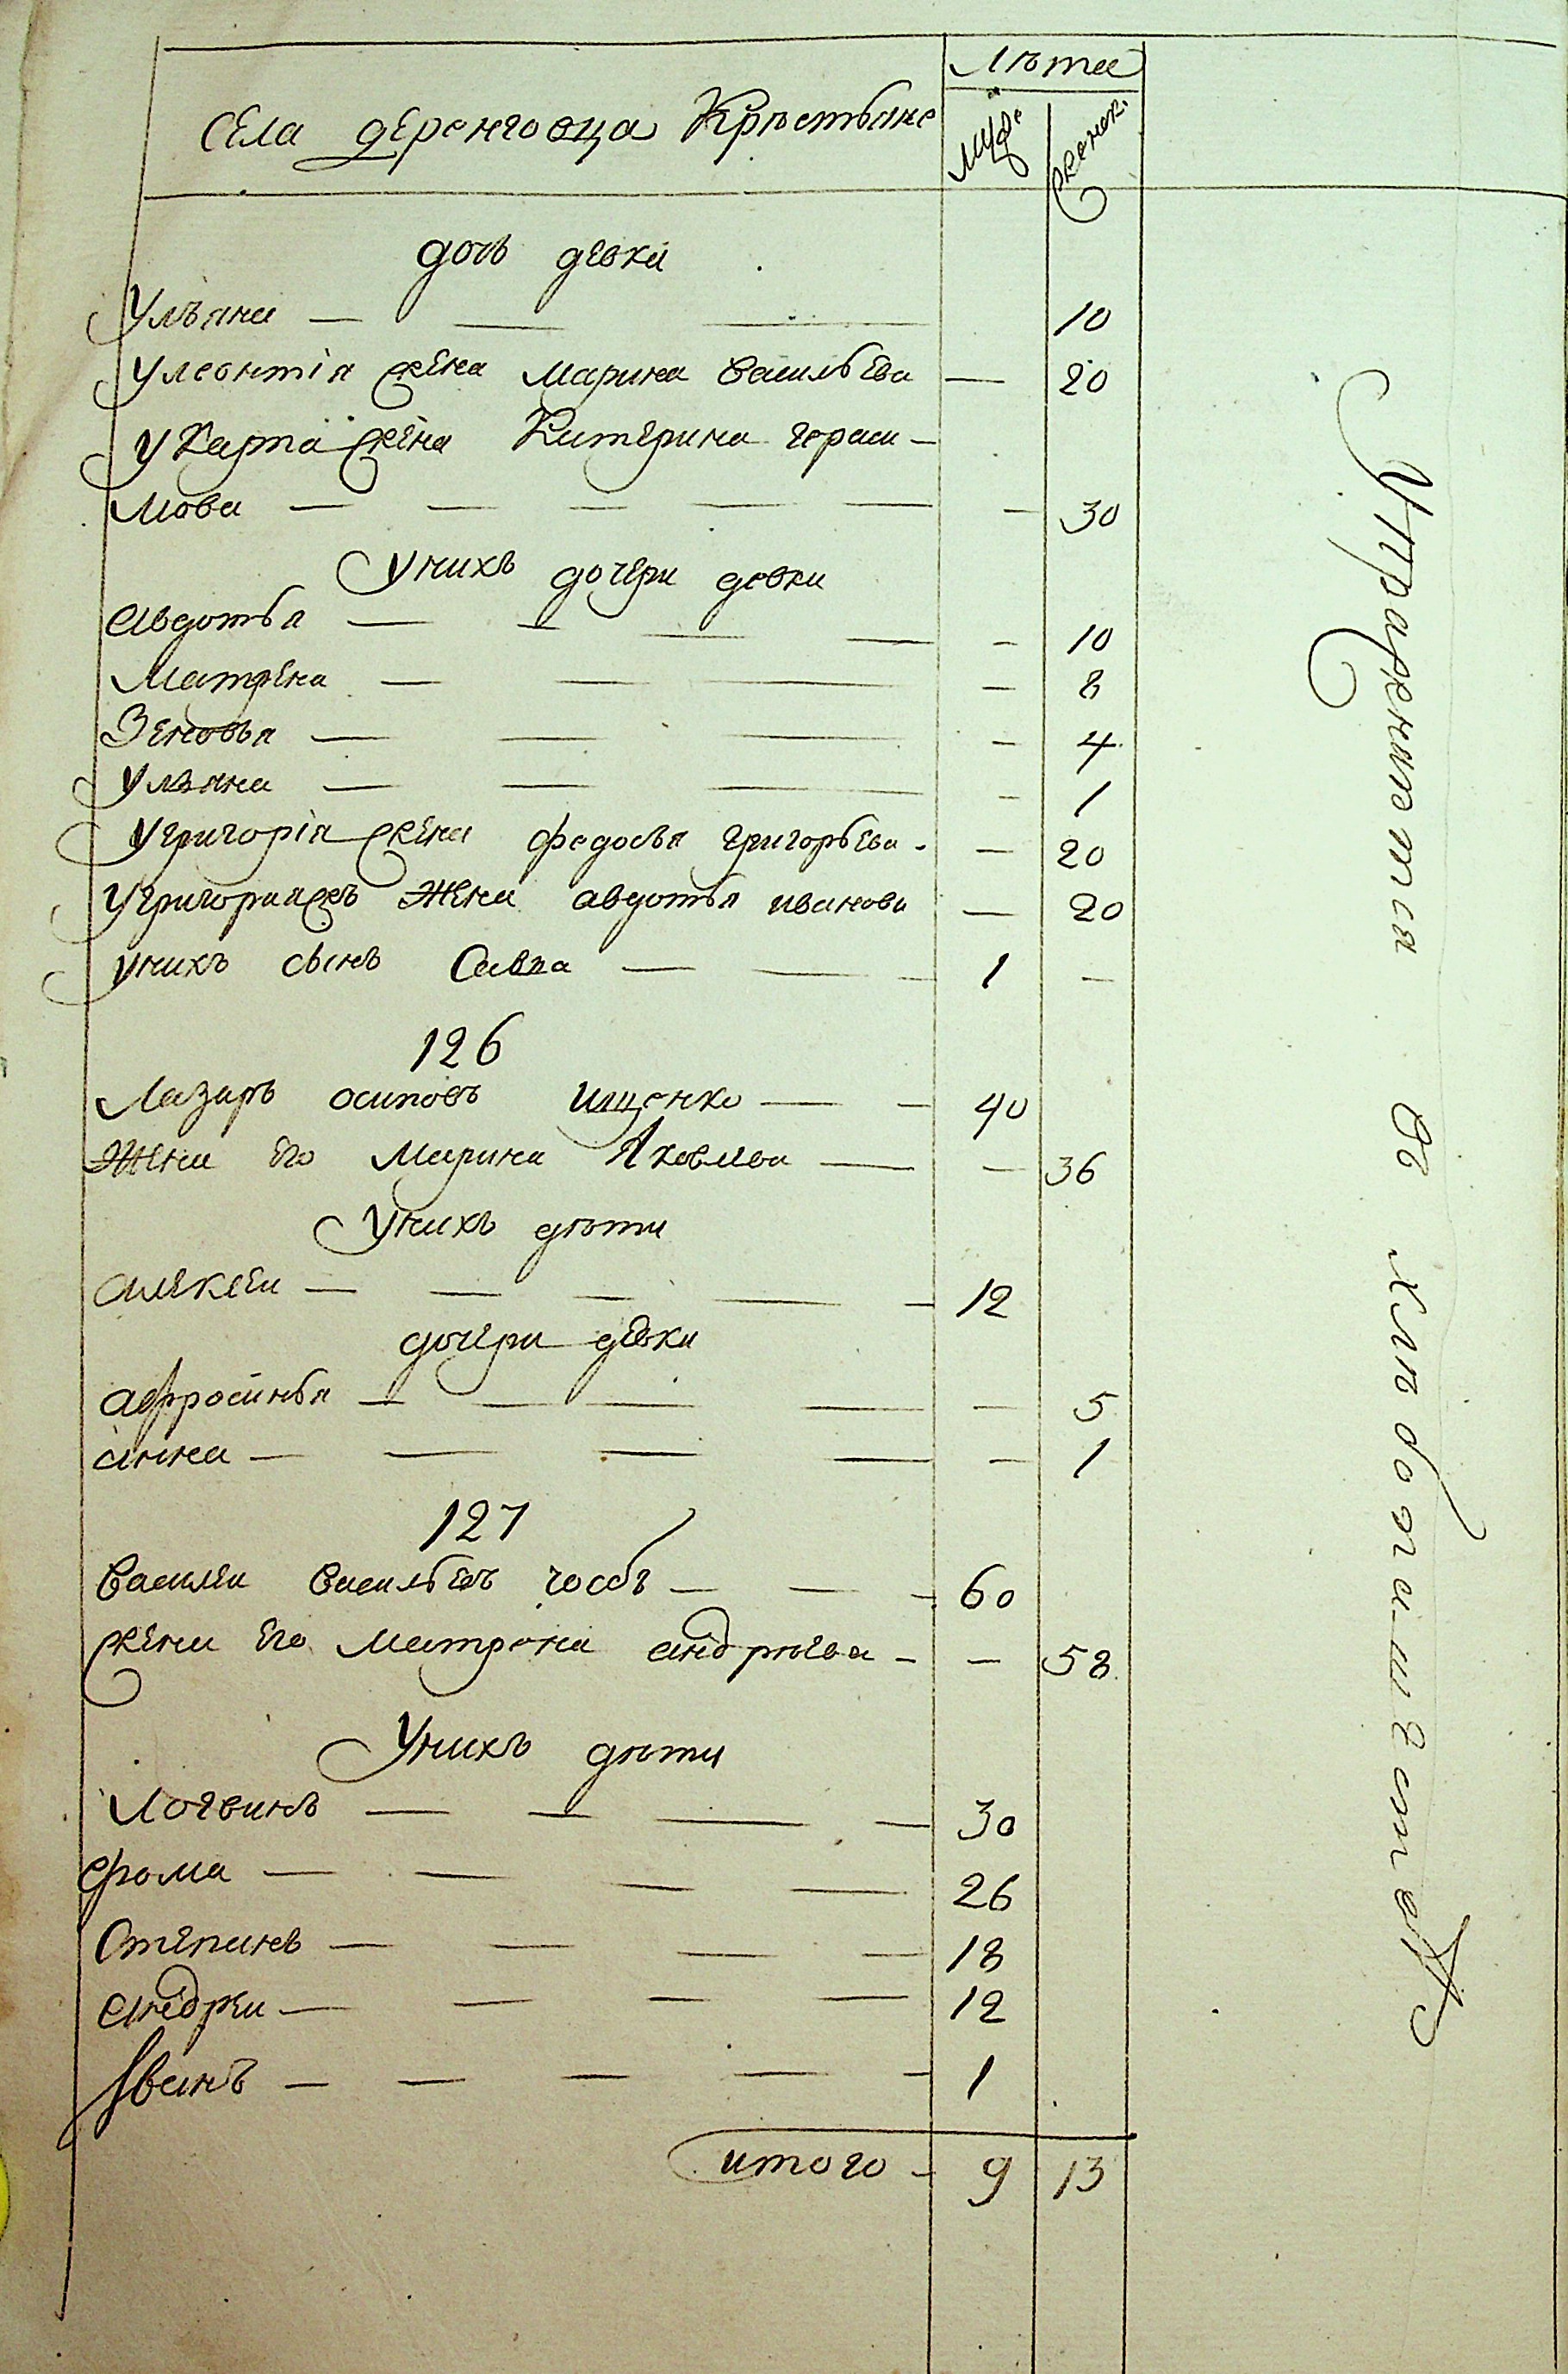 Лѣта
Села деренговца Крѣстьяне
муже
женск.
дочь девка
Ульяна — — — 10
У леонтія жена марина васильева — 20
У карпа жена Катерина гераси-
мова — — — — — — 30
У нихъ дочери девки
авдотья — — — — — 10
Матрена — — — — 8
Зеновья — — — — 4
Ульяна — — — — 1
У григорія жена федосья григорьева - — 20
У григория жъ Жена авдотья иванова — 20
У нихъ сынъ Савка — — 1 —
126
Лазарь осиповъ ищенко — — 40
Жена Его Марина Яковлева — — 36
У нихъ дѣти
алексеи — — — — — 12
дочери дѣвки
афросинья — — — — — 5
анна — — — — — 1
127
василеи васильевъ — — — 60
жена Его Матрона андрѣева - — 58
У нихъ дѣти
Логвинъ — — — — 30
фома — — — — 26
Степанъ — — — — 18
андреи — — — — 12
Иванъ — — — — — 1
итого - 9 13
Упражняется в хлебопашестве